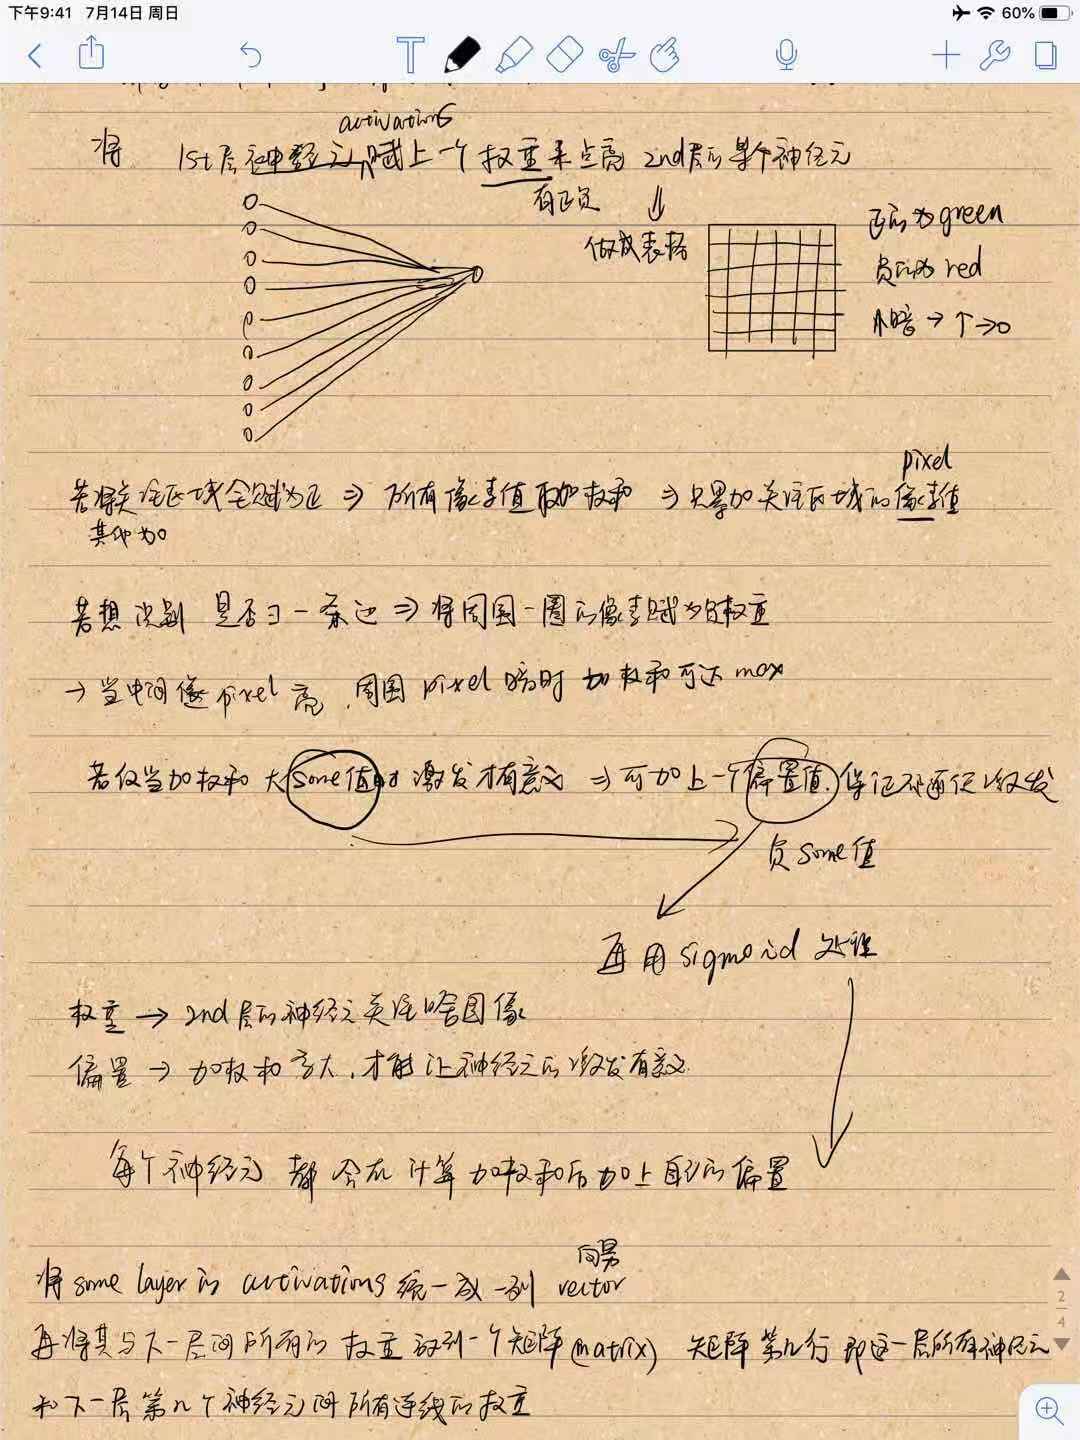 下午9:41 7月14日 周日
60%
activations
将 1st层神经元赋上一个权重来点亮 2nd层的某个神经元
有正负
做成表格
正的为green
负的为red
小暗→↑→0
pixel
若将关注区域全赋为正 ⇒ 所有像素值取加权和 ⇒ 只累加关注区域的像素值
其他为0
若想识别 是否 一条边 ⇒ 将周围一圈的像素赋为负权重
→ 当中间像pixel亮,周围pixel暗时 加权和可达max
若仅当加权和大some值时 激发才有意义 ⇒ 可加上一个偏置值,保证不随便激发
负some值
再用sigmoid处理
权重 → 2nd层的神经元关注啥图像
偏置 → 加权和多大,才能让神经元的激发有意义.
每个神经元 都会在计算加权和后加上自己的偏置
向量
将some layer的 activations 统一成一列 vector
再将其与下一层间所有的 权重 放到一个矩阵(matrix) 矩阵第n行 即这一层所有神经元
和下一层第n个神经元间所有连线的权重
2
4